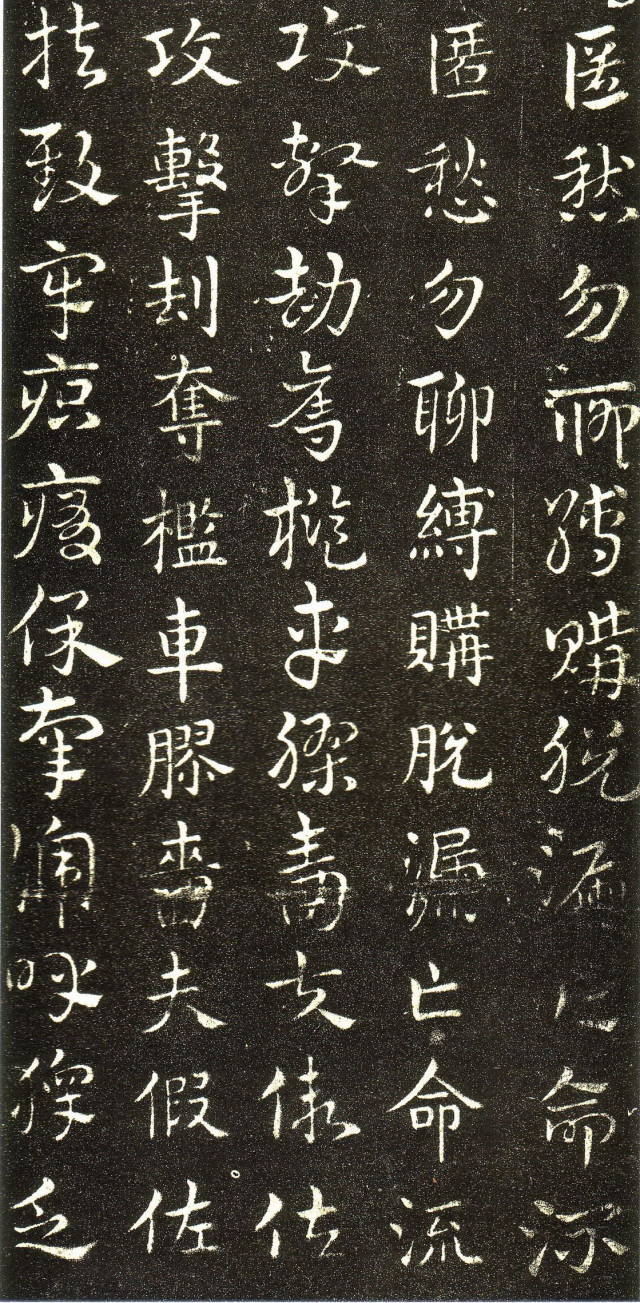 匿愁勿聊縛購脫漏亡命流
匿愁勿聊縛購脫漏亡命流
攻擊劫奪檻車膠嗇夫假佐
攻擊刦奪檻車膠嗇夫假佐
扶致牢疻痏保辜啼呼乏